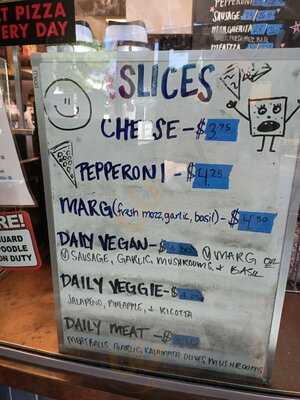 AT PIZZA
ERY DAY
PEPPERONI
SAUSAGE
MARGHERITA
MEATZZA
SLICES
CHEESE - $3.75
PEPPERONI - $4.25
MARG (fresh mozz, garlic, basil) - $4.50
DAILY VEGAN - $
Ⓥ MARG OR
Ⓥ SAUSAGE, GARLIC, MUSHROOMS & BASIL
DAILY VEGGIE - $
JALAPENO, PINEAPPLE, & RICOTTA
DAILY MEAT - $
MEATBALLS GARLIC KALAMATA OLIVES MUSHROOMS
RE!
GUARD
POODLE
ON DUTY